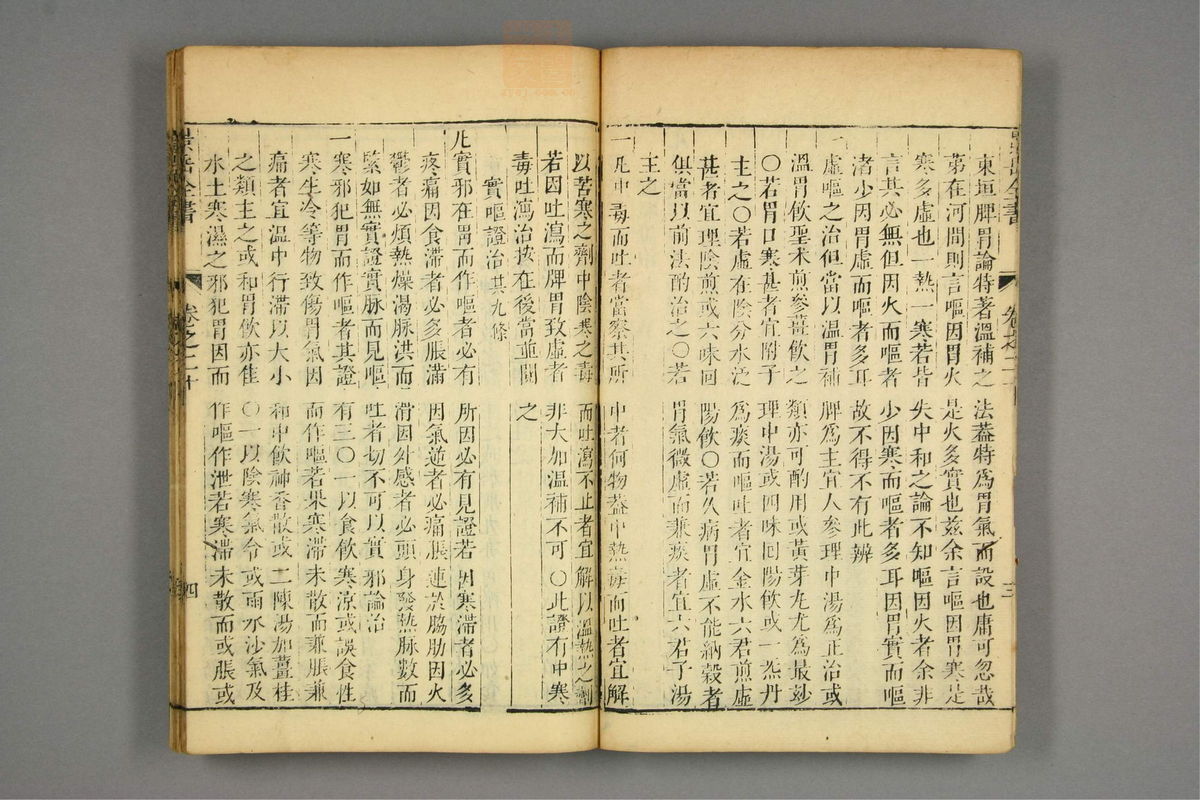 東垣脾胃論特著溫補之法蓋特爲胃氣而設也庸可忽哉
第在河間則言嘔因胃火是火多實也兹余言嘔因胃寒是
寒多虛也一熱一寒若皆失中和之論不知嘔因火者余非
言其必無但因火而嘔者少因寒而嘔者多耳因胃實而嘔
者少因胃虛而嘔者多耳故不得不有此辨
一虛嘔之治但當以溫胃補脾爲主宜人參理中湯爲正治或
溫胃飲聖术煎參薑飲之類亦可酌用或黃芽丸尤爲最妙
○若胃口寒甚者宜附子理中湯或四味回陽飲或一炁丹
主之○若虛在陰分水泛爲痰而嘔吐者宜金水六君煎虛
甚者宜理陰煎或六味回陽飲○若久病胃虛不能納穀者
俱當以前法酌治之○若胃氣微虛而兼痰者宜六君子湯
主之
一凡中毒而吐者當察其所中者何物蓋中熱毒而吐者宜解
以苦寒之劑中陰寒之毒而吐瀉不止者宜解以溫熱之劑
若因吐瀉而脾胃致虛者非大加溫補不可○此證有中寒
毒吐瀉治按在後當並閱之
實嘔證治共九條
凡實邪在胃而作嘔者必有所因必有見證若因寒滯者必多
疼痛因食滯者必多脹滿因氣逆者必痛脹連於脇肋因火
鬱者必煩熱燥渴脉洪而滑因外感者必頭身發熱脉數而
緊如無實證實脉而見嘔吐者切不可以實邪論治
一寒邪犯胃而作嘔者其證有三○一以食飲寒凉或誤食性
寒生冷等物致傷胃氣因而作嘔若果寒滯未散而兼脹兼
痛者宜溫中行滯以大小和中飲神香散或二陳湯加薑桂
之類主之或和胃飲亦佳○一以陰寒氣令或雨水沙氣及
水土寒濕之邪犯胃因而作嘔作泄若寒滯未散而或脹或
景岳全書
卷之二十
三
景岳全書
卷之二十
四